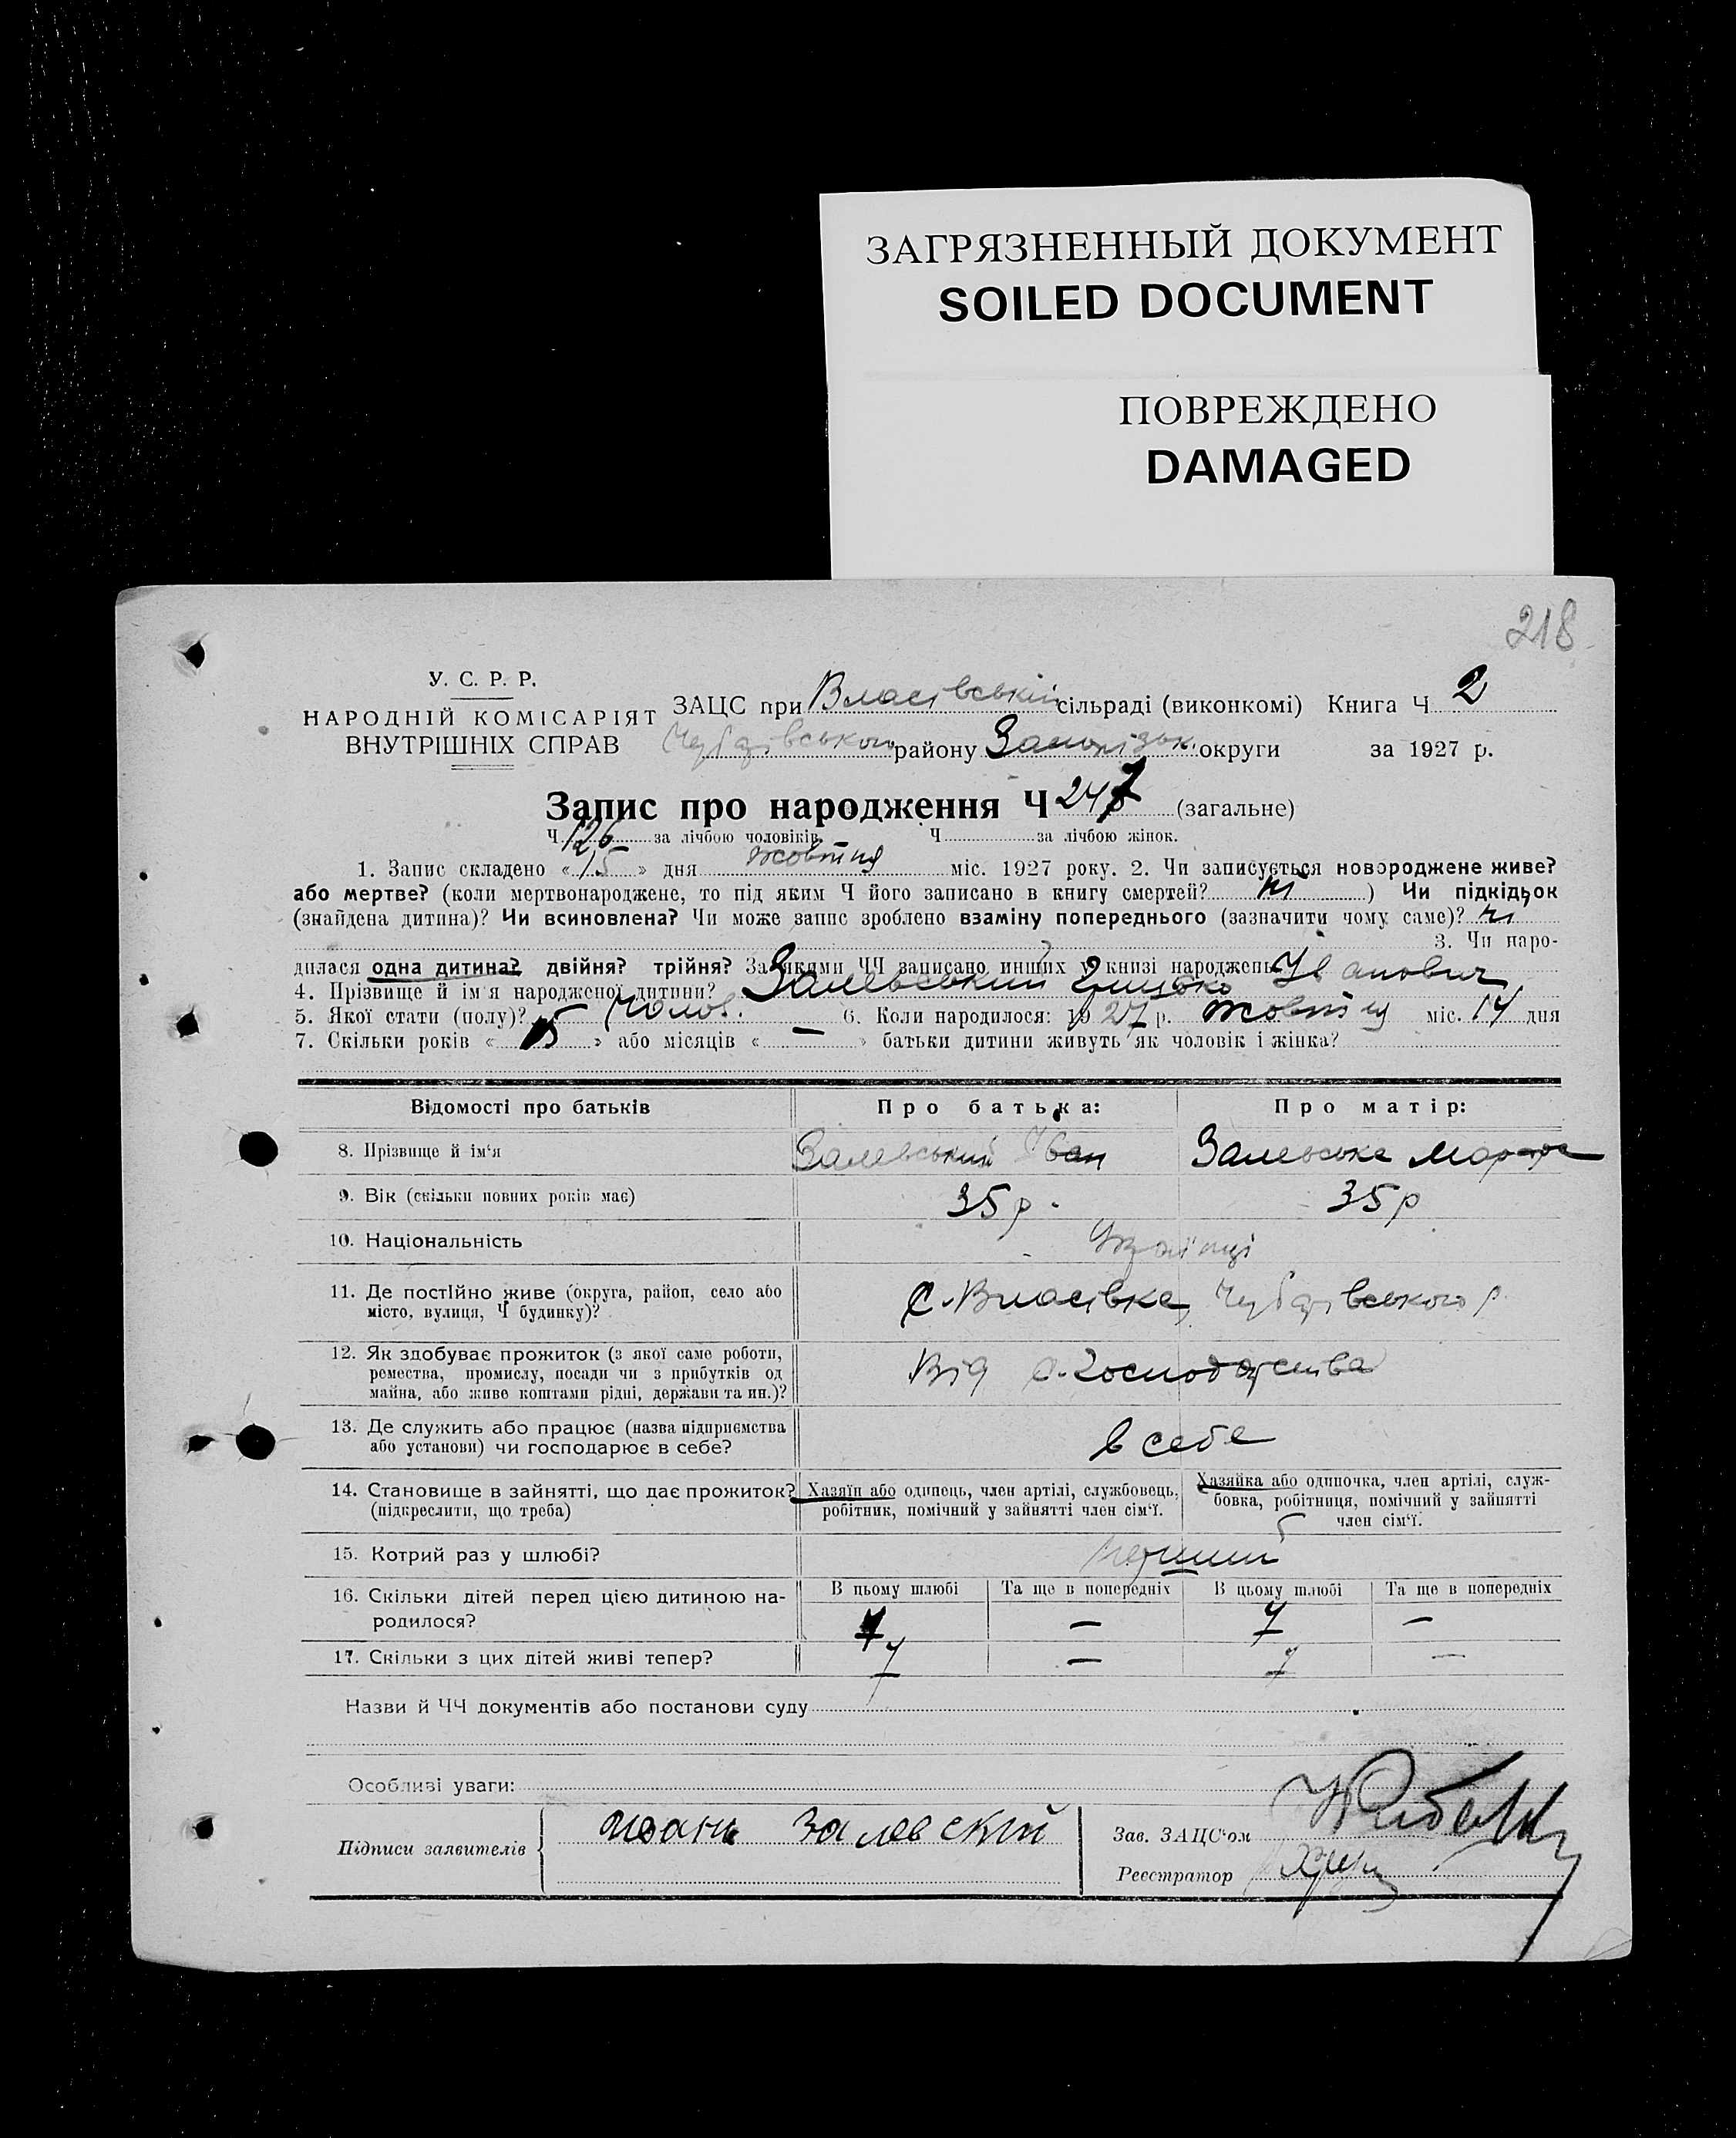 ЗАГРЯЗНЕННЫЙ ДОКУМЕНТ
SOILED DOCUMENT
ПОВРЕЖДЕНО
DAMAGED
218
У. С. Р. Р.
НАРОДНІЙ КОМІСАРІЯТ
ВНУТРІШНІХ СПРАВ
ЗАЦС при Власівській сільраді (виконкомі) Книга Ч 2
Чубарівського району Запорізьк. округи за 1927 р.
Запис про народження Ч 247 (загальне)
Ч 126 за лічбою чоловіків Ч за лічбою жінок.
1. Запис складено «15» дня жовтня міс. 1927 року. 2. Чи записується новороджене живе?
або мертве? (коли мертвонароджене, то під яким Ч його записано в книгу смертей? ні ) Чи підкідьок
(знайдена дитина)? Чи всиновлена? Чи може запис зроблено взаміну попереднього (зазначити чому саме)? ні
3. Чи наро-
дилася одна дитина? двійня? трійня? За якими ЧЧ записано инших у книзі народжень
4. Прізвище й ім'я народженої дитини? Залевський Грицько Іванович
5. Якої стати (полу)? чолов. 6. Коли народилося: 1927 р. жовтня міс. 14 дня
7. Скільки років «15» або місяців « — » батьки дитини живуть як чоловік і жінка?
Відомості про батьків Про батька: Про матір:
8. Прізвище й ім'я Залевський Іван Залевська Марфа
9. Вік (скільки повних років має) 35 р. 35 р
10. Національність Українці
11. Де постійно живе (округа, район, село або
місто, вулиця, Ч будинку)? С. Власівка, Чубарівського р.
12. Як здобуває прожиток (з якої саме роботи,
ремества, промислу, посади чи з прибутків од
майна, або живе коштами рідні, держави та ин.)? Від с. господарства
13. Де служить або працює (назва підприємства
або установи) чи господарює в себе? в себе
14. Становище в зайнятті, що дає прожиток?
(підкреслити, що треба)
Хазяїн або одинець, член артілі, службовець,
робітник, помічний у зайнятті член сім'ї.
Хазяйка або одиночка, член артілі, служ-
бовка, робітниця, помічний у зайнятті
член сім'ї.
15. Котрий раз у шлюбі? перший
В цьому шлюбі Та ще в попередніх В цьому шлюбі Та ще в попередніх
16. Скільки дітей перед цією дитиною на-
родилося? 7 — 7 —
17. Скільки з цих дітей живі тепер? 7 — 7 —
Назви й ЧЧ документів або постанови суду
Особливі уваги:
Підписи заявителів Иоанъ Залевский
Зав. ЗАЦС'ом
Реєстратор